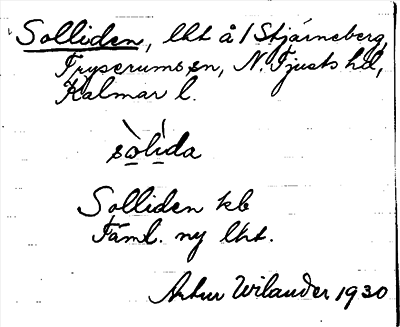 Solliden, lht å 1 Stjärneberg,
Fryserums sn, N. Tjusts hd,
Kalmar l.
sòlída
Solliden kb
Täml. ny lht.
Artur Wilander 1930